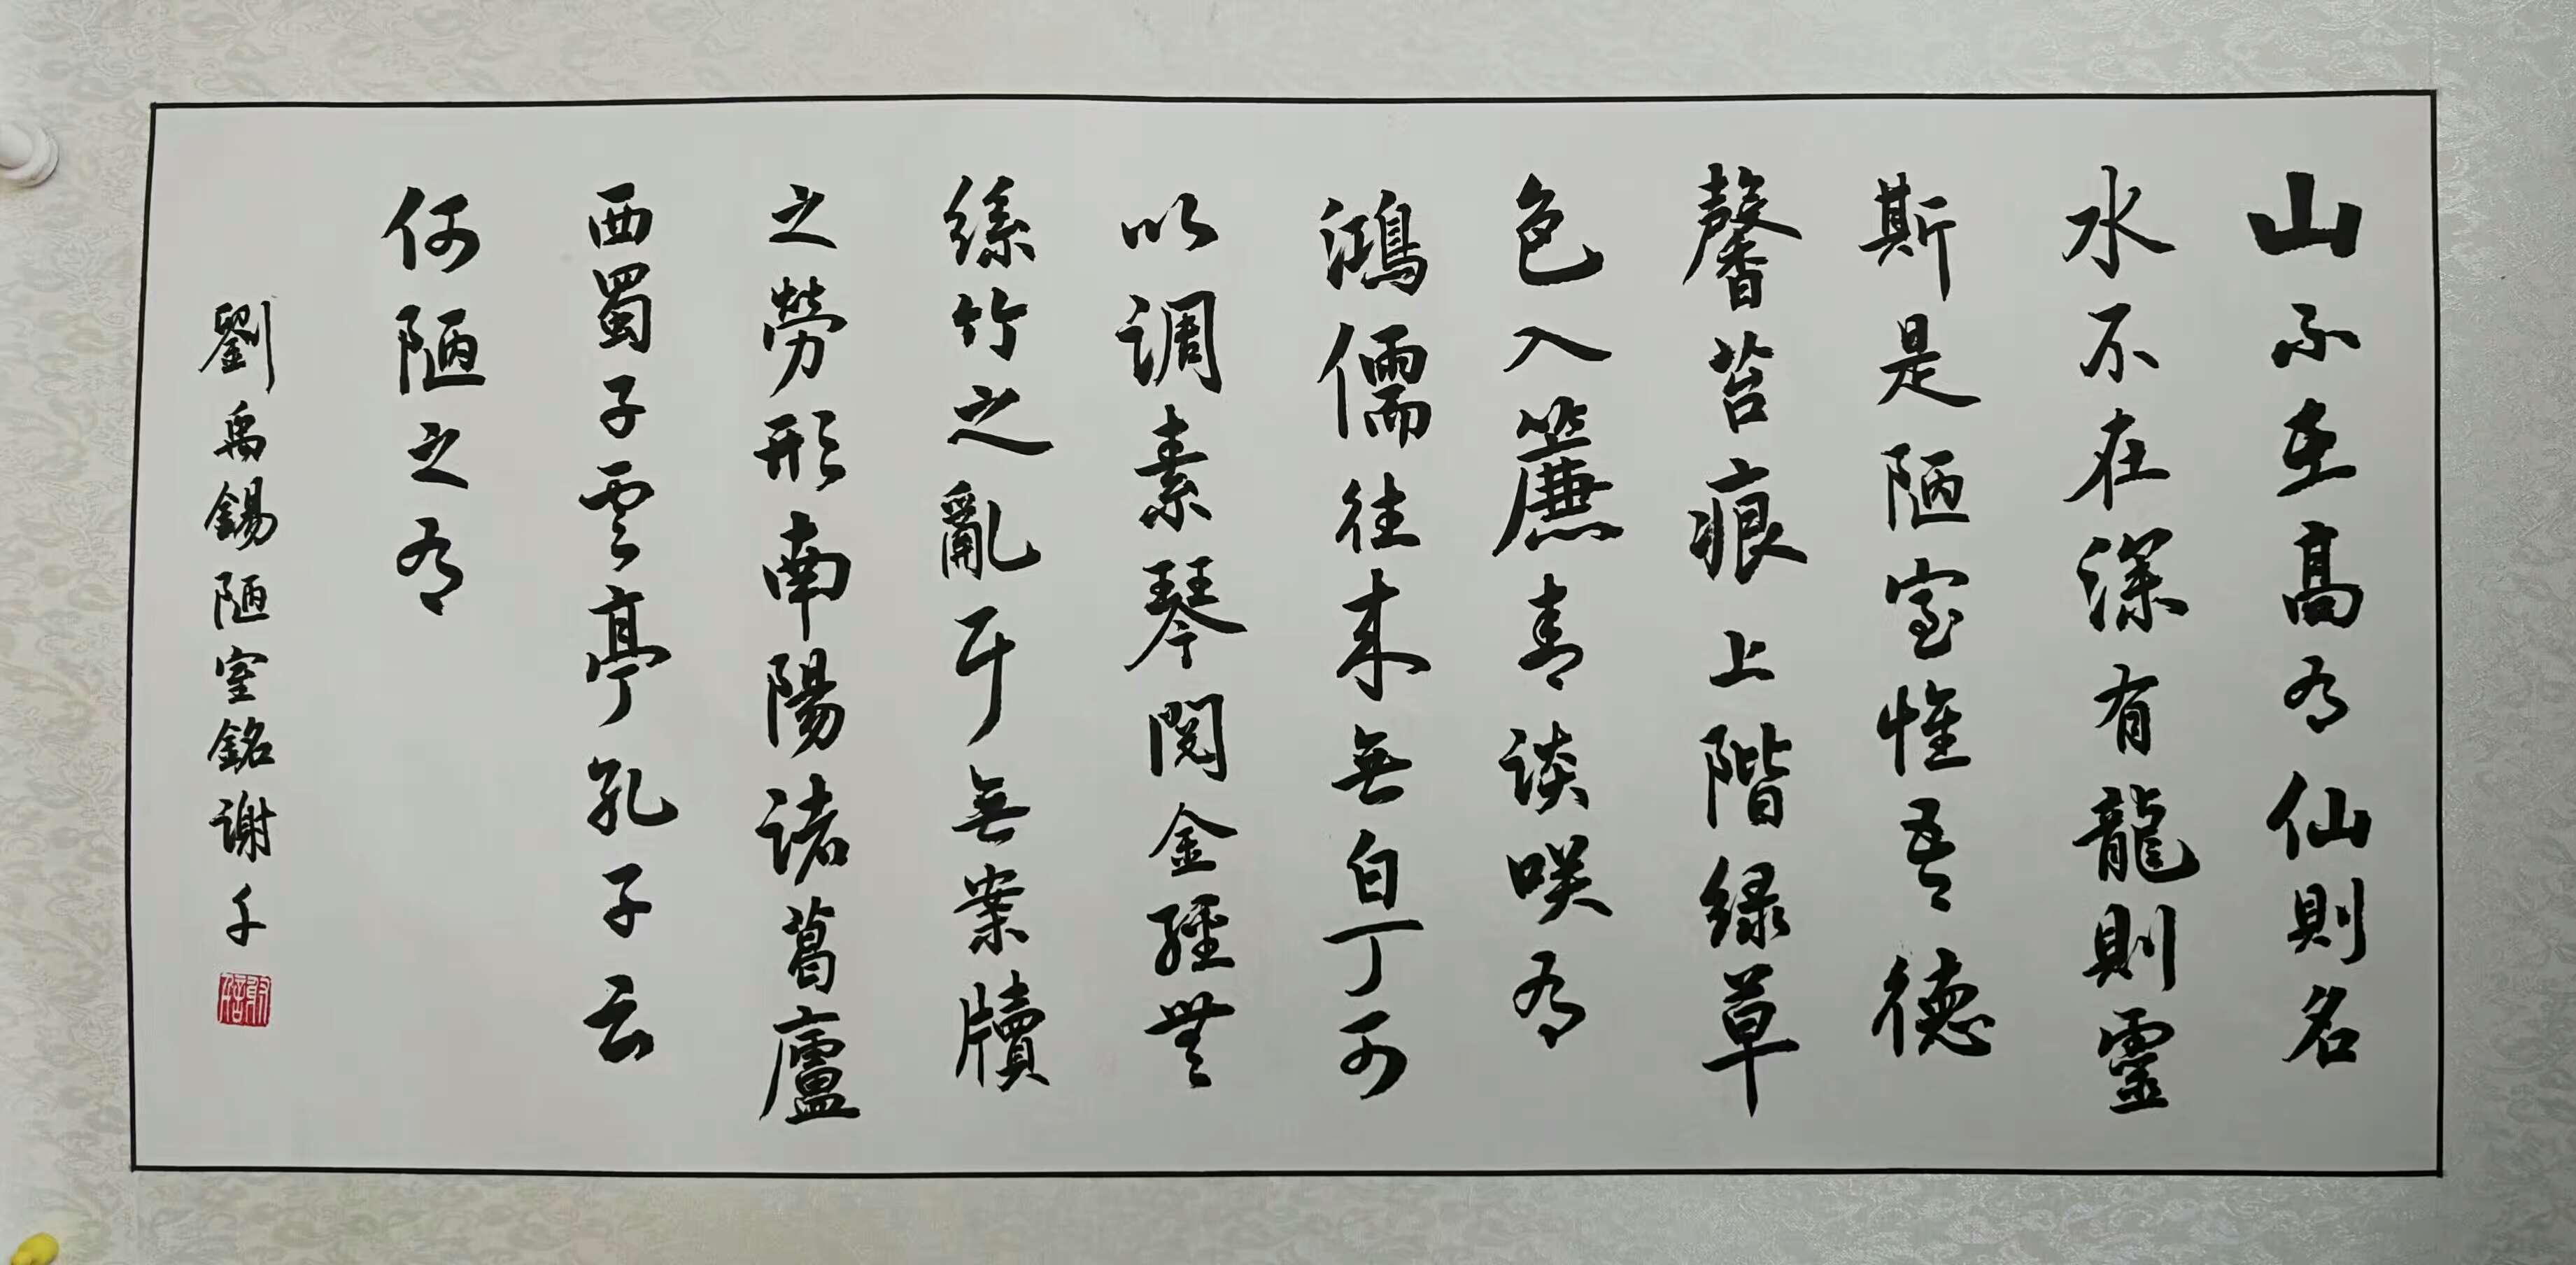 山不在高有仙則名
水不在深有龍則靈
斯是陋室惟吾德
馨苔痕上階緑草
色入簾青談咲有
鴻儒往来無白丁可
以调素琴閲金經無
絲竹之亂耳無案牘
之勞形南陽諸葛廬
西蜀子雲亭孔子云
何陋之有
劉禹錫陋室銘谢